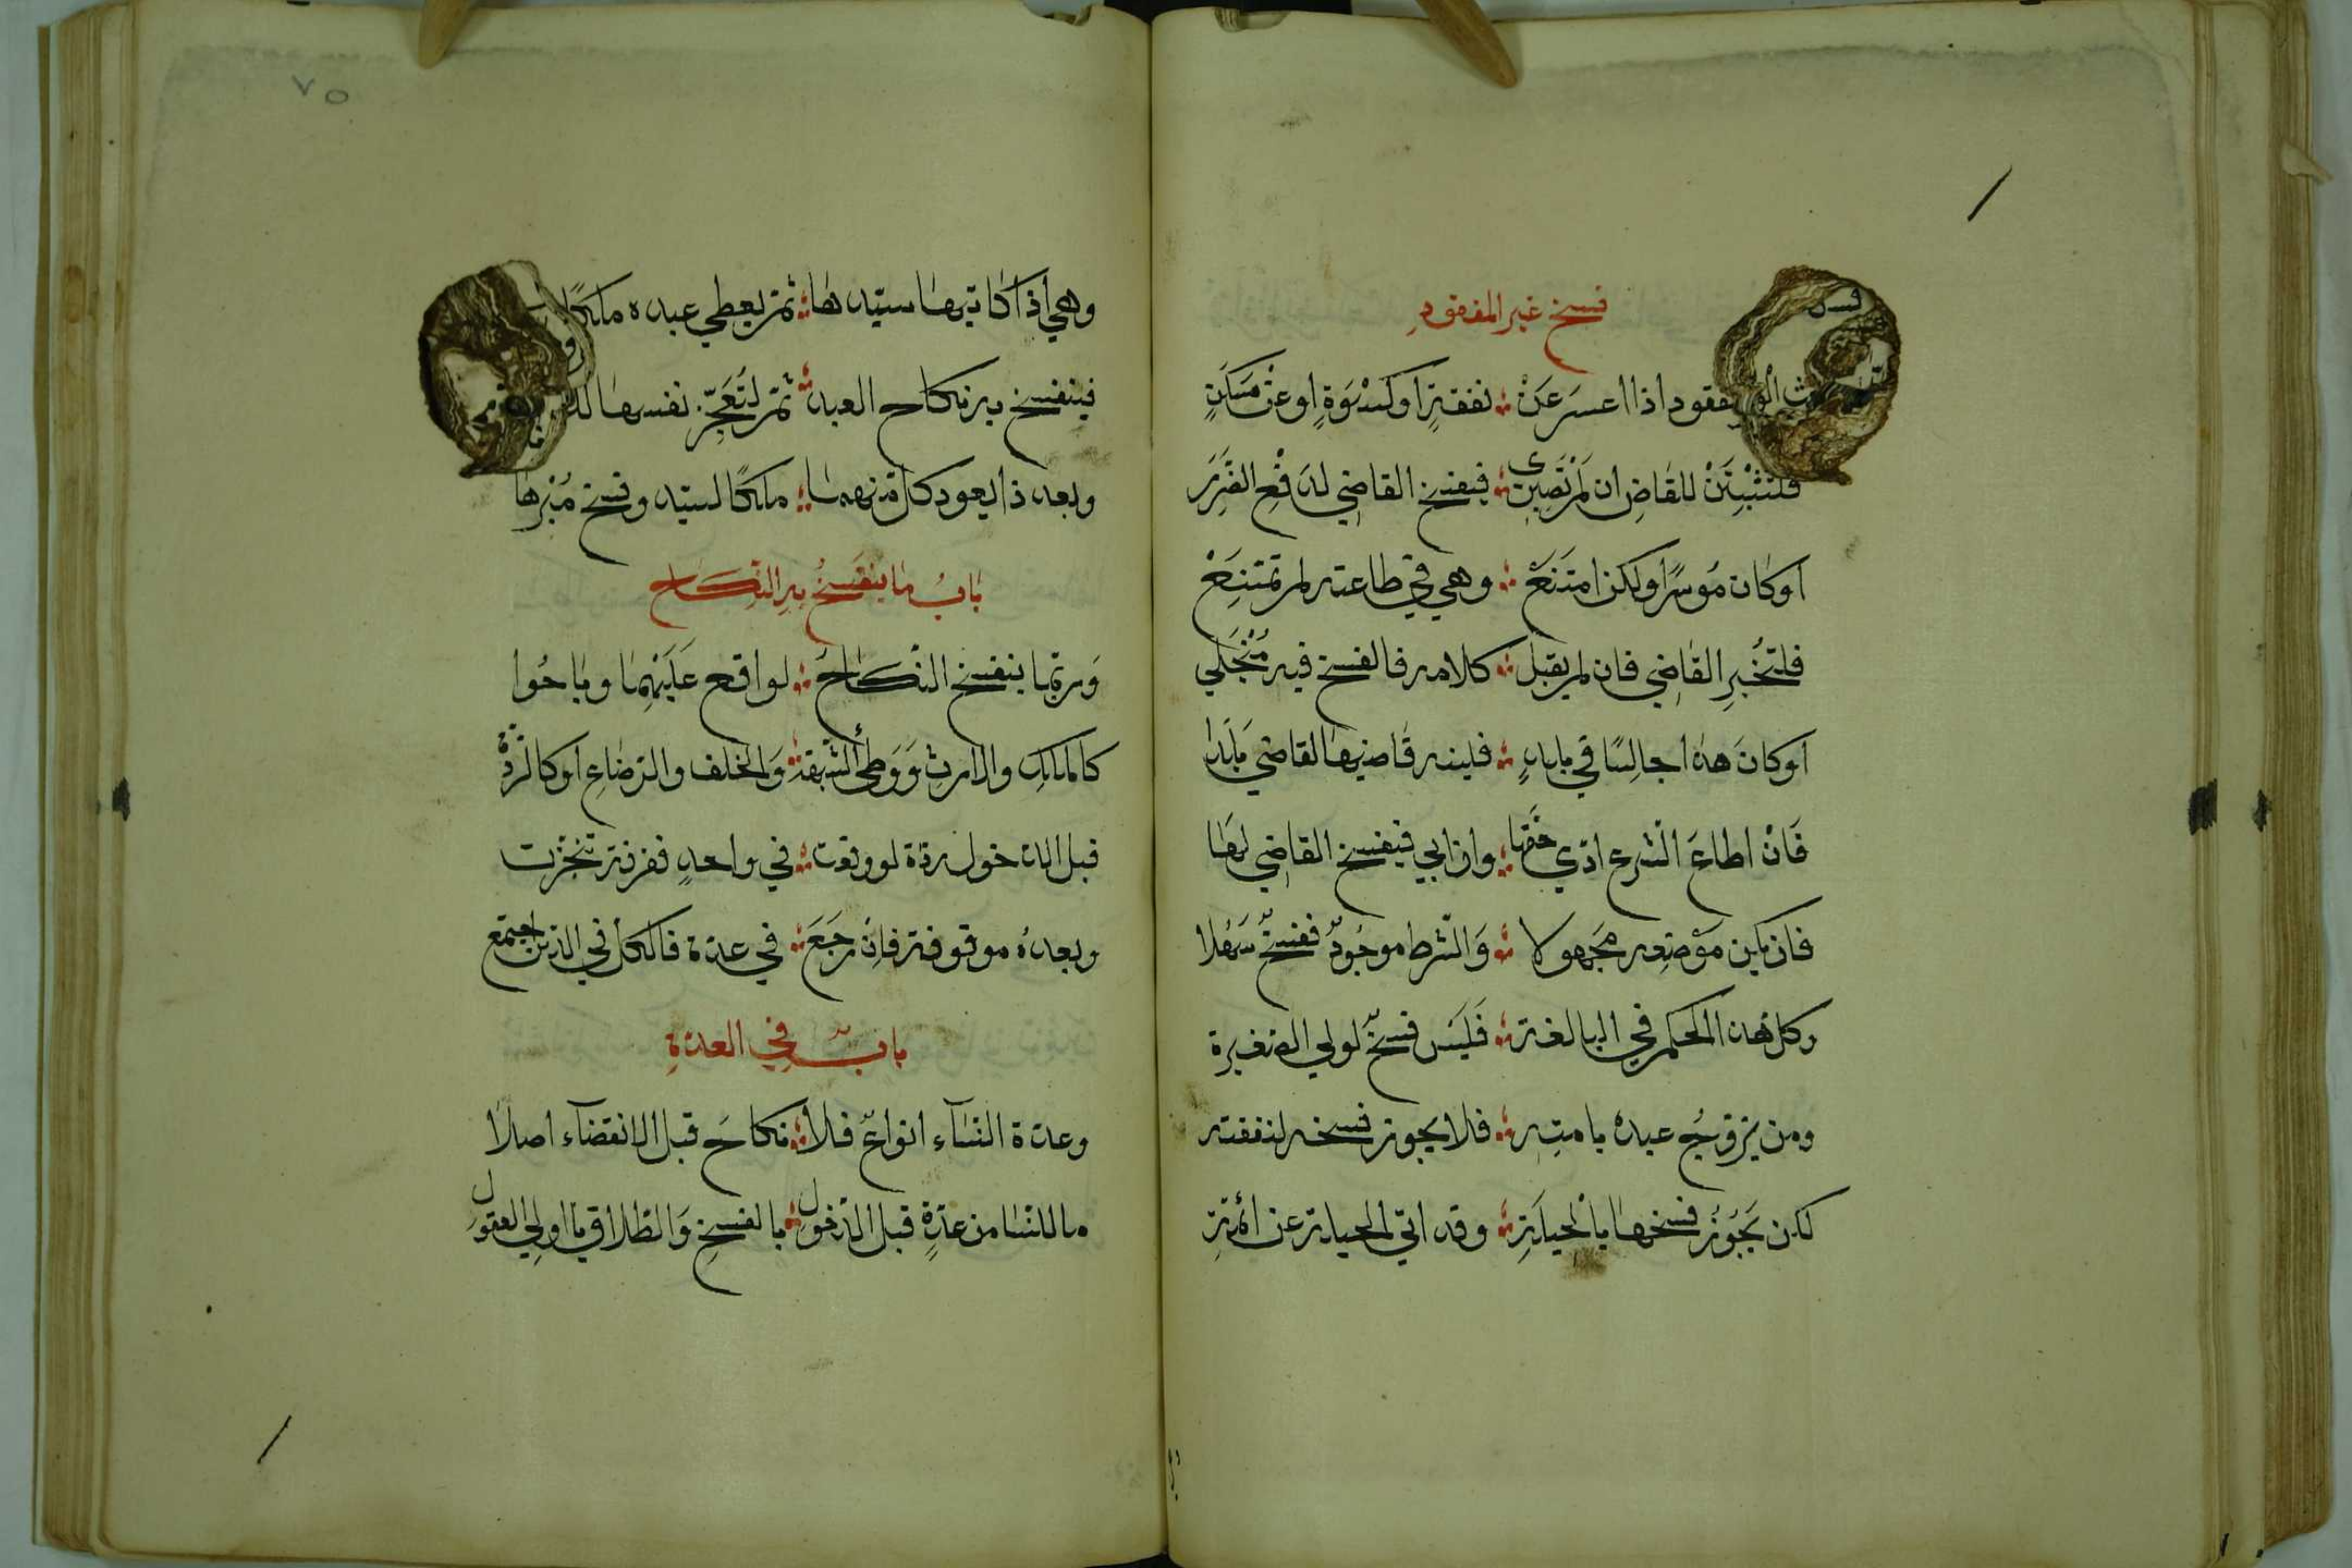 فسخ غير المفقودِ
المفقود اذا اعسر عن ؞ نفقةٍ او كسْوَةٍ اوعن مَسكنٍ
فلتثبِتَنْ للقاضِ ان لم تصبرى ؞ فيفسخ القاضي لدفْعِ الضَّرَرِ
اوكان مُوسرًا ولكن امتَنَعْ ؞ وهي في طاعته لم تمتنِعْ
فلتُخْبرِ القاضي فان لم يقبل ؞ كلامه فالفسخ فيه مُنْجَلي
اوكانَ هذا جالِسًا في بلدٍ ؞ فلينه قاضيها لقاضي بَلَدا
فَانْ اطاعَ الشرع ادّي حَقّها ؞ وان ابي فيفسخ القاضي لها
فان يكن مَوْضِعه مَجهولا ؞ وَالشرط موجُودٌ ففسخٌ سَهُلا
وكل هذا الحكم في البالغة ؞ فَليسَ فسخٌ لولي الصّغيرة
ومن يزوّجُ عبدهُ بامتِه ؞ فلا يجوز فسخه لنفقته
لكن يَجُوزُ فسخها بالحيلَةِ ؞ وقد اتي الحيلة عن ائمّةِ
٧٥
وهي اذا كاتبها سيّدها ؞ ثمّ يعطي عبده ملكًا
فينفسخ به نكاح العبد ؞ ثمّ لتُعَجِّز نفسها
وبعد ذا يعود كل منهما ؞ ملكًا لسيّد وفسخ مُبْرما
بابُ ما ينفَسِخُ بهِ النِّكاح
وَربّما ينفسخ النّكاحُ ؞ لواقع عَلَيْهِما وباحُوا
كالملكِ والارثِ وَوَطئ الشّبهة ؞ وَالخلف والرّضاعِ اوكالرّدّةْ
قبل الدخول ردّة لو وقعت ؞ في واحدٍ ففرقة تنجّزت
وبعدهُ موقوفة فاِنْ رجَعَ ؞ في عدّة فالكل في الدّين اجتمع
بابٌ في العدّةِ
وعدّة النّسآء انواعٌ فلا ؞ نكاحَ قبل الانقضآء اصلًا
ما للنّسا من عدّةٍ قبل الدّخول ؞ بالفسخِ وَالطّلاق يا اولي العقول